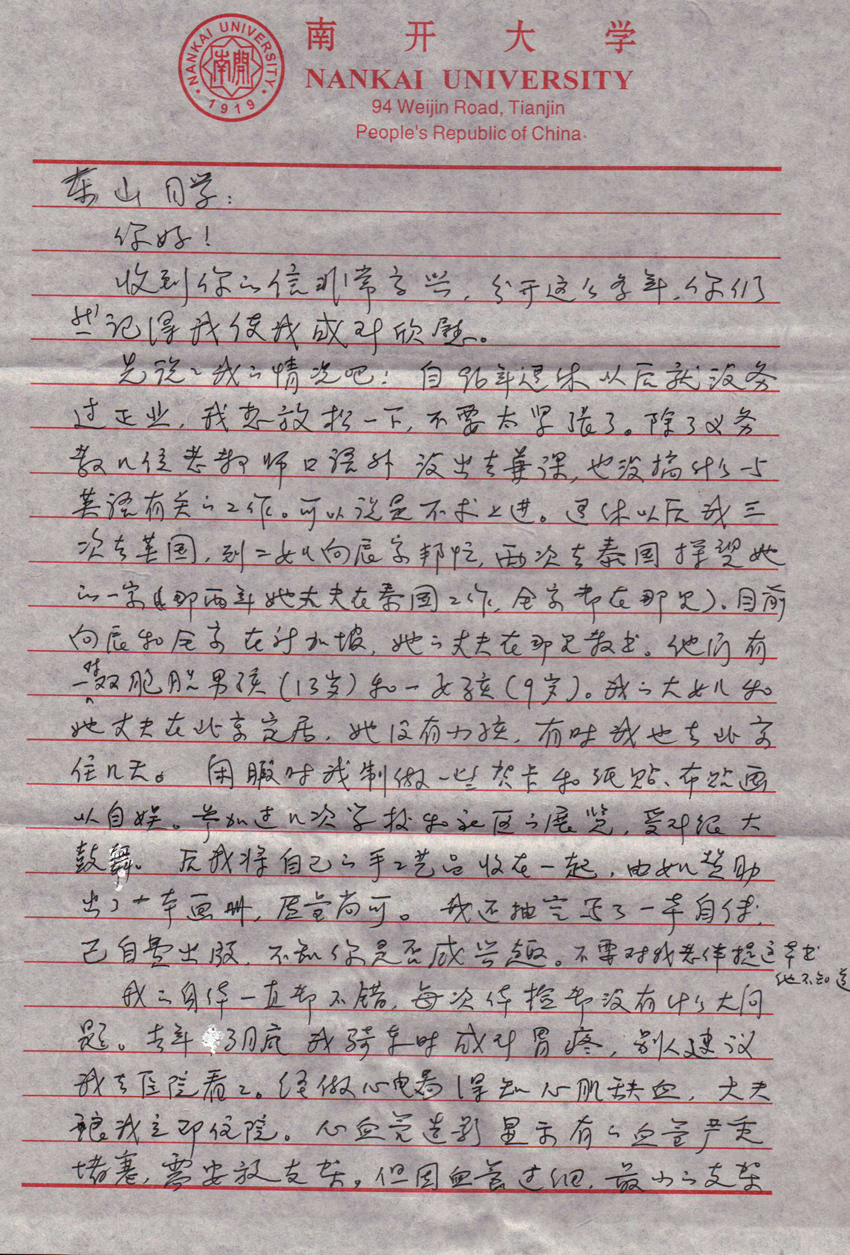 NANKAI UNIVERSITY
南開
1919
南开大学
NANKAI UNIVERSITY
94 Weijin Road, Tianjin
People's Republic of China
东山同学:
你好!
收到你的信非常高兴,分开这么多年,你们
还记得我使我感到欣慰。
先说说我的情况吧!自96年退休以后就没务
过正业,我想放松一下,不要太紧张了。除了义务
教几位老教师口语外没出去兼课,也没搞什么与
英语有关的工作。可以说是不求上进。退休以后我三
次去英国,到二女儿向辰家帮忙,两次去泰国探望她
的一家(那两年她丈夫在泰国工作,全家都在那儿)。目前
向辰和全家在新加坡,她的丈夫在那儿教书。他们有
一对双胞胎男孩(13岁)和一女孩(9岁)。我的大女儿和
她丈夫在北京定居,她没有小孩,有时我也去北京
住几天。闲暇时我制做一些贺卡和纸贴、布贴画
以自娱。参加过几次学校和社区的展览,受到很大
鼓舞。后我将自己的手工艺品收在一起,由女儿赞助
出了一本画册,质量尚可。我还抽空写了一本自传,
已自费出版,不知你是否感兴趣。不要对我老伴提这本书
他不知道
我的身体一直都不错,每次体检都没有什么大问
题。去年3月底我骑车时感到胃疼,别人建议
我去医院看看。经做心电图得知心肌缺血,大夫
让我立即住院。心血管造影显示有的血管严重
堵塞,需安放支架。但因血管过细,最小的支架